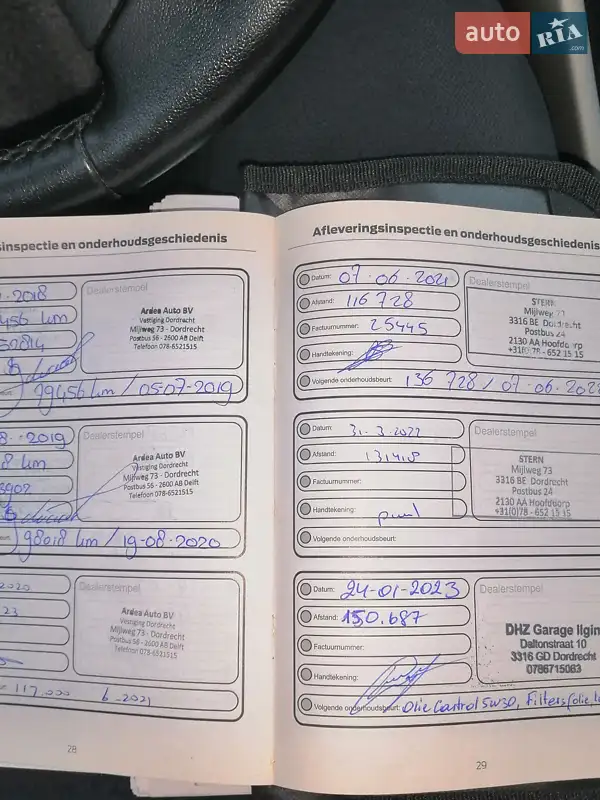 auto RIA .com
inspectie en onderhoudsgeschiedenis
2018
456 km
Dealerstempel
Ardea Auto BV
Vestiging Dordrecht
Mijlweg 73 - Dordrecht
Postbus 56 - 2600 AB Delft
Telefoon 078-6521515
79456 km / 05-07-2019
2019
8 km
Dealerstempel
Ardea Auto BV
Vestiging Dordrecht
Mijlweg 73 - Dordrecht
Postbus 56 - 2600 AB Delft
Telefoon 078-6521515
98018 km / 19-08-2020
2020
23
Dealerstempel
Ardea Auto BV
Vestiging Dordrecht
Mijlweg 73 - Dordrecht
Postbus 56 - 2600 AB Delft
Telefoon 078-6521515
117.000 6-2021
28
Afleveringsinspectie en onderhoudsgeschiedenis
Datum: 07-06-2021
Afstand: 116 728
Factuurnummer: 25445
Handtekening:
Volgende onderhoudsbeurt: 136 728 / 07-06-202
Dealerstempel
STERN
Mijlweg 73
3316 BE Dordrecht
Postbus 24
2130 AA Hoofddorp
+31(0)78 - 652 15 15
Datum: 31-3-2022
Afstand: 131418
Factuurnummer:
Handtekening:
Volgende onderhoudsbeurt:
Dealerstempel
STERN
Mijlweg 73
3316 BE Dordrecht
Postbus 24
2130 AA Hoofddorp
+31(0)78 - 652 15 15
Datum: 24-01-2023
Afstand: 150.687
Factuurnummer:
Handtekening:
Volgende onderhoudsbeurt: Olie Castrol 5w30, Filters (olie,
Dealerstempel
DHZ Garage Ilgin
Daltonstraat 10
3316 GD Dordrecht
0786715063
29